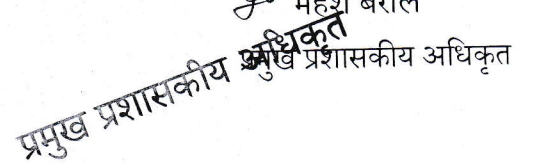 महेश बराल
प्रमुख प्रशासकीय अधिकृत
प्रमुख प्रशासकीय अधिकृत